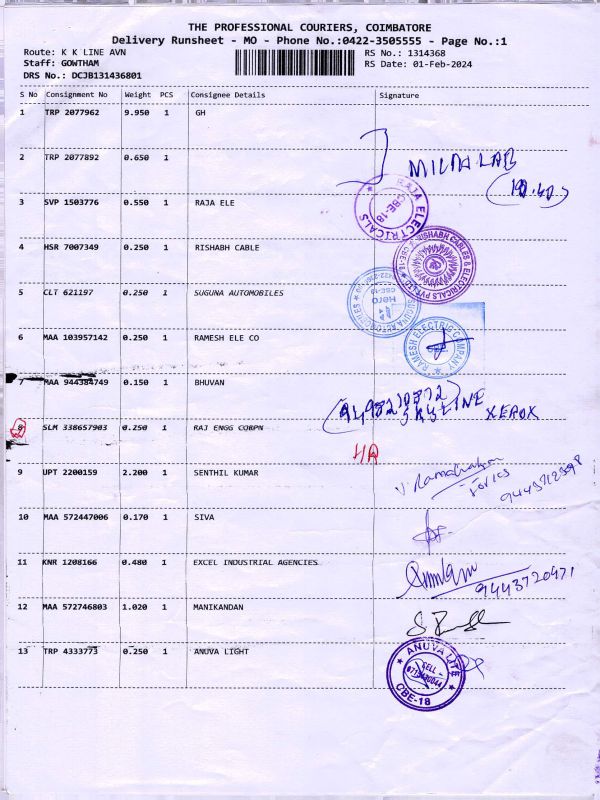 THE PROFESSIONAL COURIERS, COIMBATORE
Delivery Runsheet - MO - Phone No.:0422-3505555 - Page No.:1
Route: K K LINE AVN
RS No.: 1314368
Staff: GOWTHAM
RS Date: 01-Feb-2024
DRS No.: DCJB131436801
S No Consignment No Weight PCS Consignee Details Signature
1 TRP 2077962 9.950 1 GH
2 TRP 2077892 0.650 1
3 SVP 1503776 0.550 1 RAJA ELE
RAJA ELECTRICALS
CBE-18
4 HSR 7007349 0.250 1 RISHABH CABLE
RISHABH CABLES & ELECTRICALS PVT LTD
5 CLT 621197 0.250 1 SUGUNA AUTOMOBILES
SUGUNA AUTOMOBILES
Hero
6 MAA 103957142 0.250 1 RAMESH ELE CO
RAMESH ELECTRIC COMPANY
7 MAA 944384749 0.150 1 BHUVAN
XEROX
8 SLM 338657903 0.250 1 RAJ ENGG CORPN
9 UPT 2200159 2.200 1 SENTHIL KUMAR
10 MAA 572447006 0.170 1 SIVA
11 KNR 1208166 0.480 1 EXCEL INDUSTRIAL AGENCIES
9443720971
12 MAA 572746803 1.020 1 MANIKANDAN
13 TRP 4333773 0.250 1 ANUVA LIGHT
ANUVA LITE
CELL
CBE-18